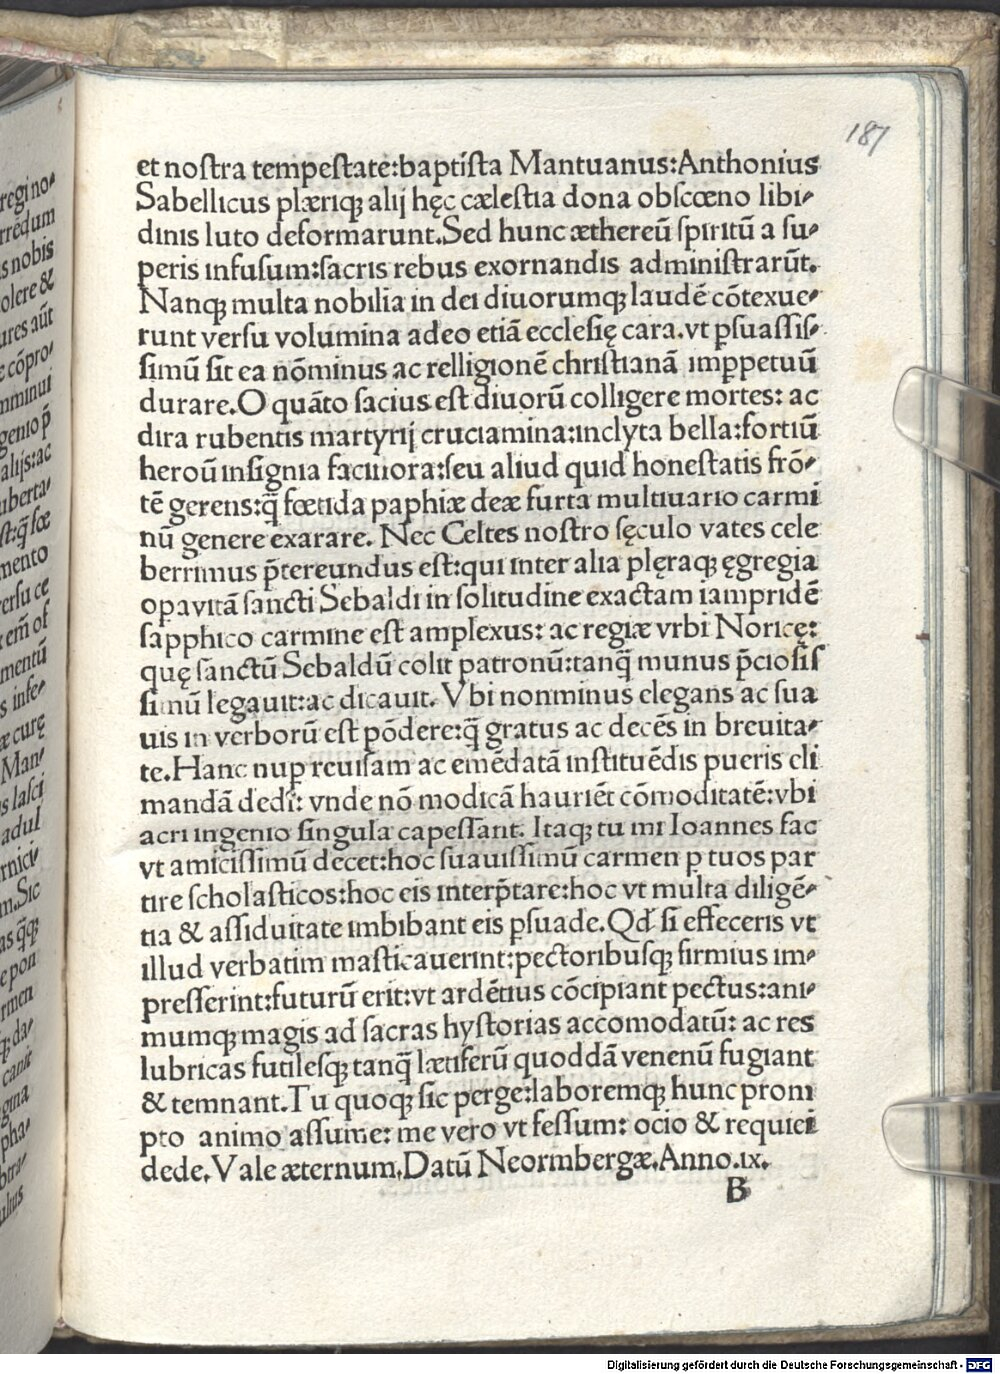 187
et nostra tempestate:baptista Mantuanus:Anthonius
Sabellicus plæriqꝫ alij hęc cælestia dona obscœno libi⸗
dinis luto deformarunt.Sed hunc æthereū spiritū a su⸗
peris infusum:sacris rebus exornandis administrarūt.
Nanqꝫ multa nobilia in dei diuorumqꝫ laudē cōtexue⸗
runt versu volumina adeo etiā ecclesię cara.vt ꝑsuassis⸗
simū sit ea nōminus ac relligionē christianā imꝑpetuū
durare.O quāto sacius est diuorū colligere mortes: ac
dira rubentis martyrij cruciamina:inclyta bella:fortiū
heroū insignia facinora:seu aliud quid honestatis frō⸗
tē gerens:q̄ fœtida paphiæ deæ furta multiuario carmi
nū genere exarare. Nec Celtes nostro sęculo vates cele
berrimus p̄tereundus est:qui inter alia plęraqꝫ ęgregia
opa vitā sancti Sebaldi in solitudine exactam iampridē
sapphico carmine est amplexus: ac regiæ vrbi Noricę:
quę sanctū Sebaldū colit patronū:tanq̄ munus p̄ciosis
simū legauit:ac dicauit. Vbi nonminus elegans ac sua
uis in verborū est pōdere:q̄ gratus ac decēs in breuita⸗
te.Hanc nuꝑ reuisam ac emēdatā instituēdis pueris eli
mandā dedi: vnde nō modicā hauriēt cōmoditatē:vbi
acri ingenio singula capessant. Itaqꝫ tu mi Ioannes fac
vt amicissimū decet:hoc suauissimū carmen ꝑ tuos par
tire scholasticos:hoc eis interp̄tare:hoc vt multa diligē⸗
tia & assiduitate imbibant eis ꝑsuade.Qđ si effeceris vt
illud verbatim masticauerint:pectoribusqꝫ firmius im⸗
presserint:futurū erit:vt ardētius cōcipiant pectus:ani⸗
mumqꝫ magis ad sacras hystorias accomodatū: ac res
lubricas futilesqꝫ tanq̄ lætiferū quoddā venenū fugiant
& temnant.Tu quoqꝫ sic perge:laboremqꝫ hunc prom
pto animo assume: me vero vt fessum: ocio & requiei
dede.Vale æternum.Datū Neormbergæ.Anno.ix.
B
Digitalisierung gefördert durch die Deutsche Forschungsgemeinschaft - DFG